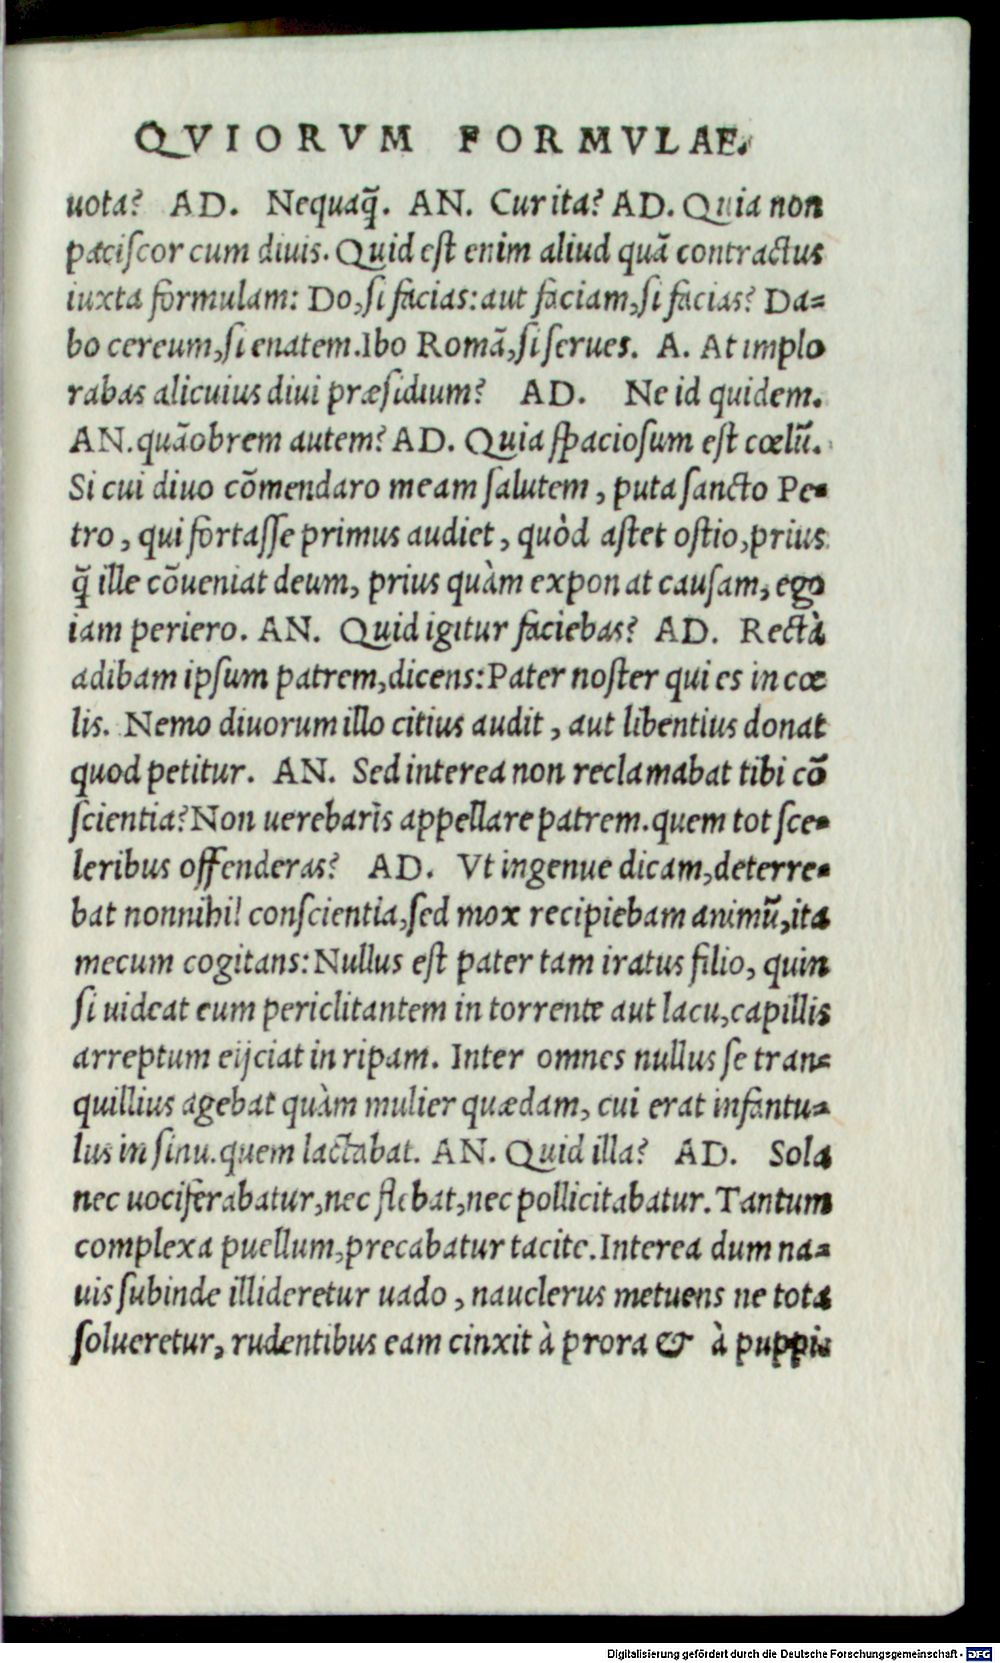 QVIORVM FORMVLAE.
uota? AD. Nequaq̃. AN. Cur ita? AD. Quia non
paciſcor cum diuis. Quid eſt enim aliud quā contractus
iuxta formulam: Do, ſi facias: aut faciam, ſi facias? Da=
bo cereum, ſi enatem. Ibo Romā, ſi ſerues. A. At implo
rabas alicuius diui præſidium? AD. Ne id quidem.
AN. quāobrem autem? AD. Quia ſpacioſum eſt cœlū.
Si cui diuo cōmendaro meam ſalutem, puta ſancto Pe=
tro, qui fortaſſe primus audiet, quòd aſtet oſtio, prius
q̃ ille cōueniat deum, prius quàm exponat cauſam, ego
iam periero. AN. Quid igitur faciebas? AD. Rectà
adibam ipſum patrem, dicens: Pater noſter qui es in cœ
lis. Nemo diuorum illo citius audit, aut libentius donat
quod petitur. AN. Sed interea non reclamabat tibi cō
ſcientia? Non uerebaris appellare patrem. quem tot ſce=
leribus offenderas? AD. Vt ingenue dicam, deterre=
bat nonnihil conſcientia, ſed mox recipiebam animū, ita
mecum cogitans: Nullus eſt pater tam iratus filio, quin
ſi uideat eum periclitantem in torrente aut lacu, capillis
arreptum eijciat in ripam. Inter omnes nullus ſe tran=
quillius agebat quàm mulier quædam, cui erat infantu=
lus in ſinu. quem lactabat. AN. Quid illa? AD. Sola
nec uociferabatur, nec flebat, nec pollicitabatur. Tantum
complexa puellum, precabatur tacite. Interea dum na=
uis ſubinde illideretur uado, nauclerus metuens ne tota
ſolueretur, rudentibus eam cinxit à prora & à puppi
Digitalisierung gefördert durch die Deutsche Forschungsgemeinschaft - DFG